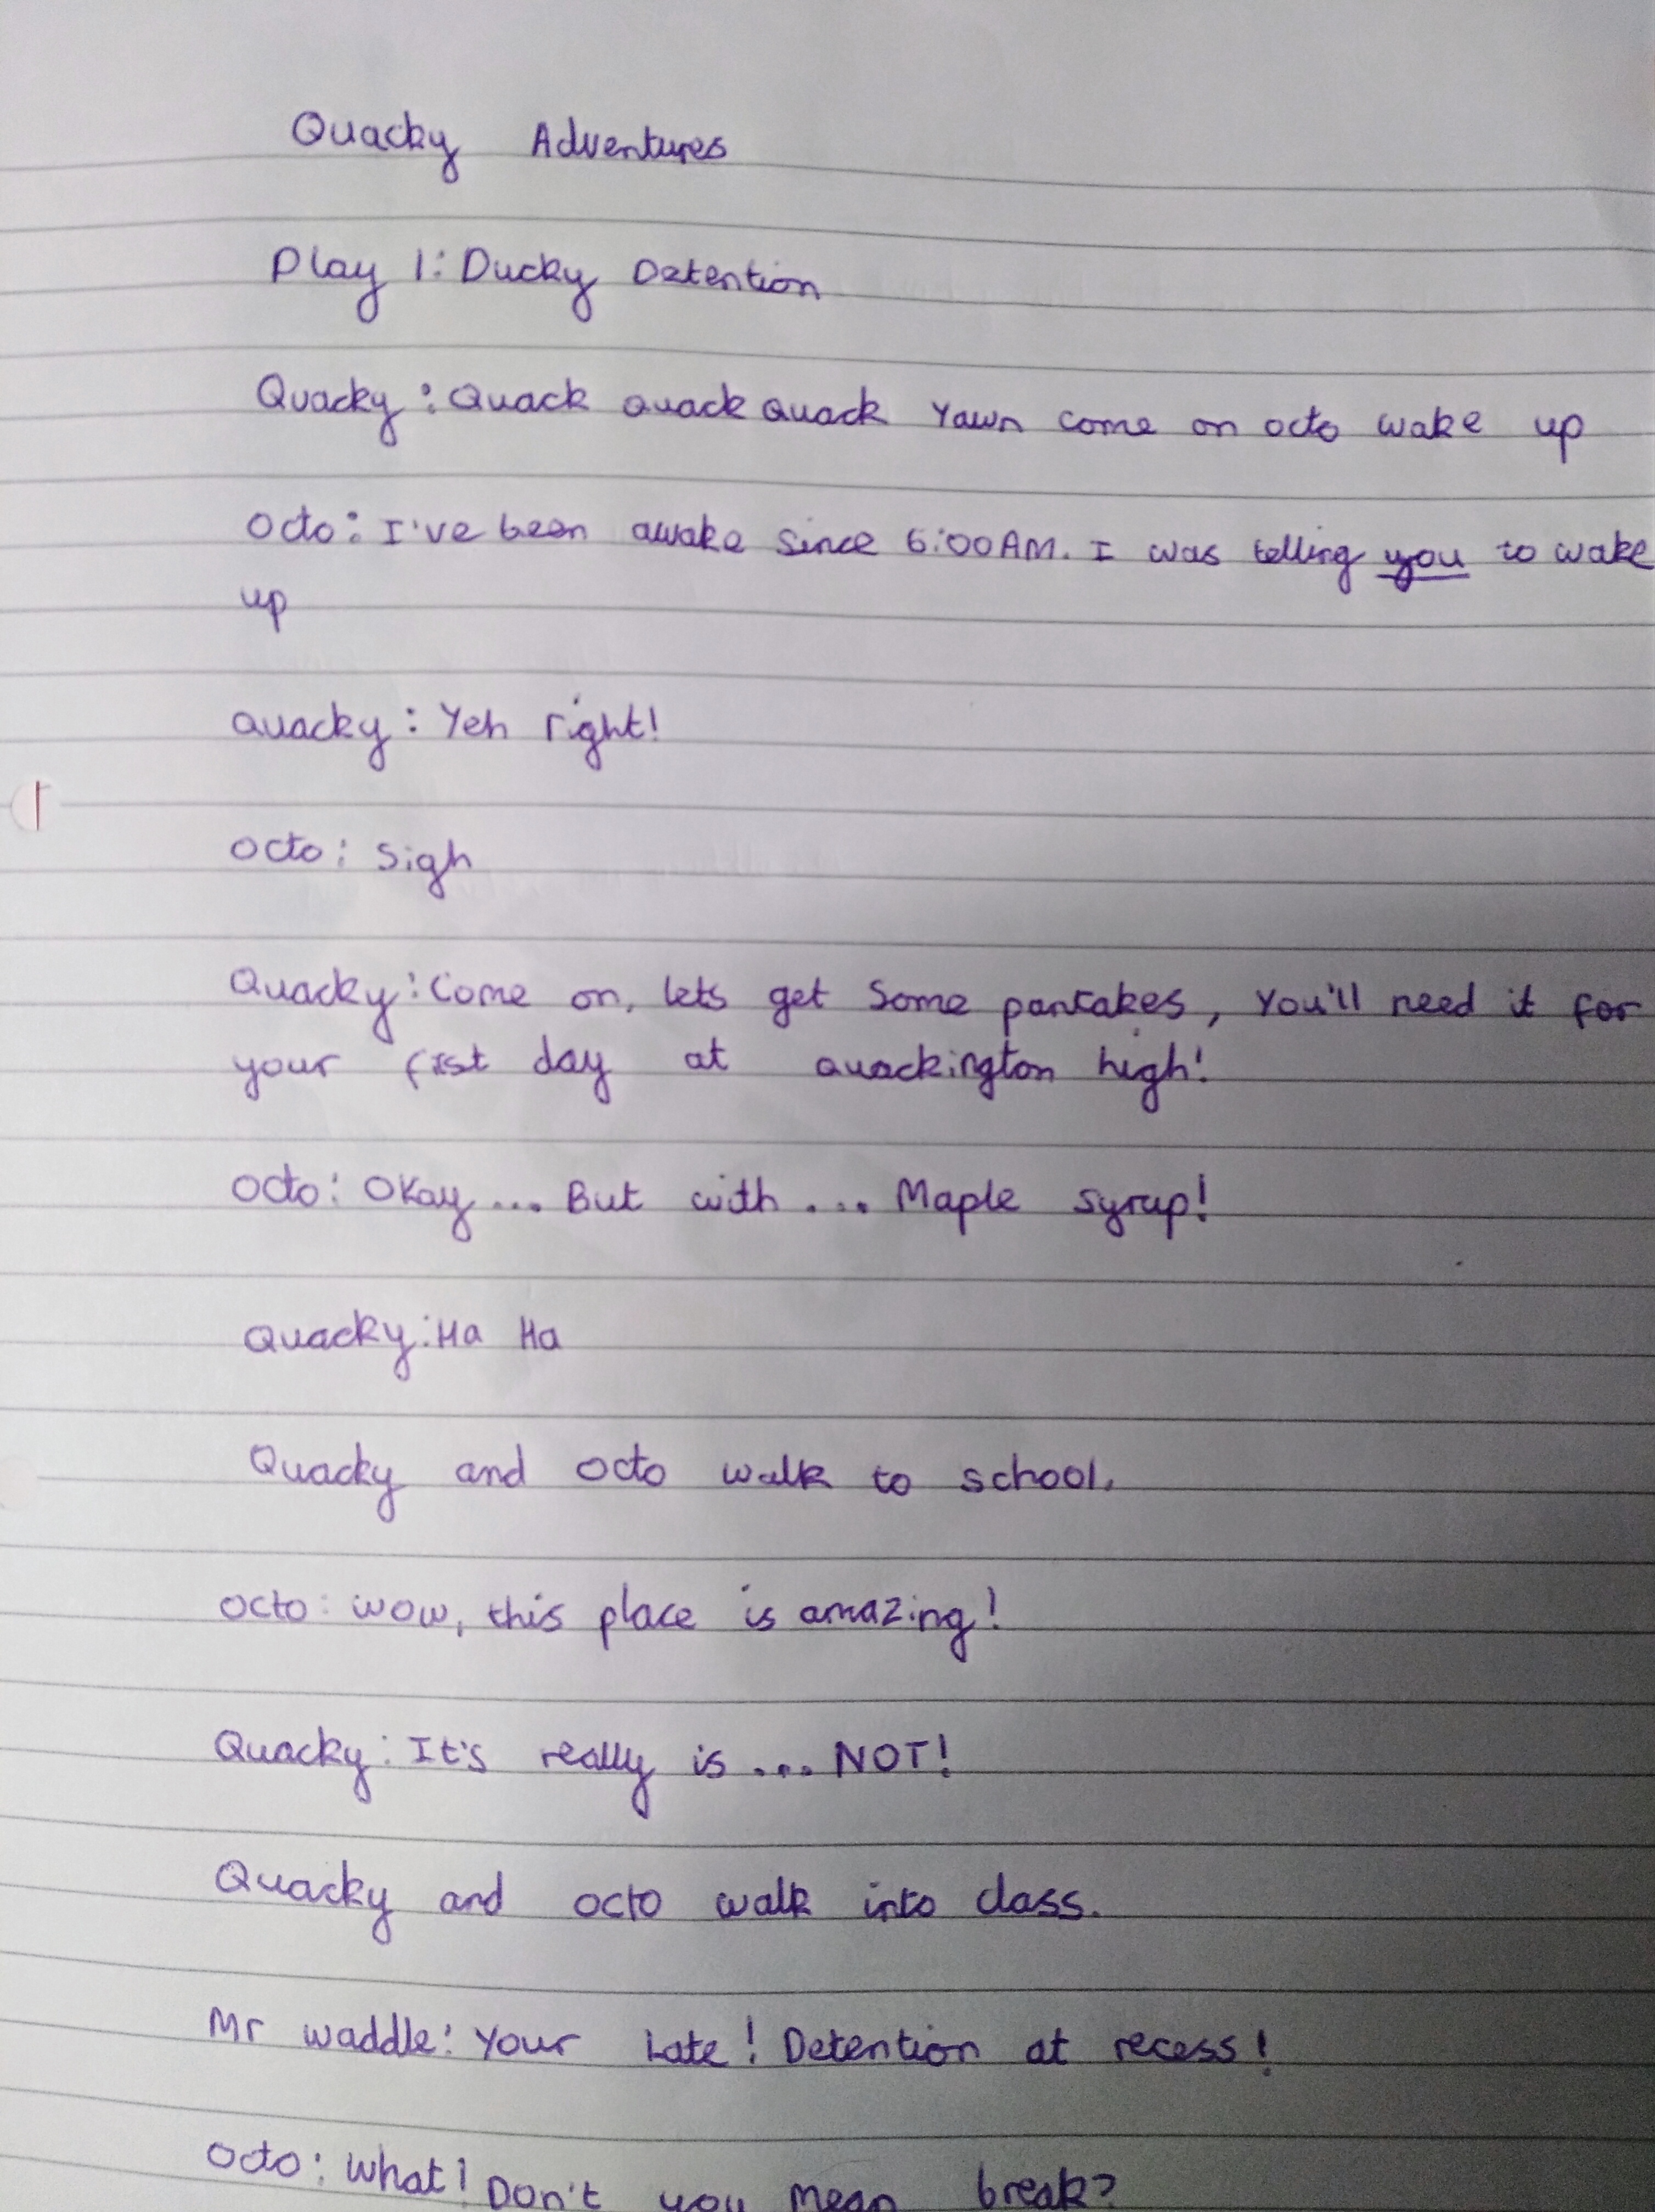 Quacky Adventures
Play 1: Ducky Detention
Quacky: Quack quack quack Yawn come on octo wake up
Octo: I've been awake since 6:00AM. I was telling you to wake
up
Quacky: Yeh right!
Octo: Sigh
Quacky: Come on, lets get some pancakes, You'll need it for
your first day at quackington high!
Octo: Okay... But with ... Maple syrup!
Quacky: Ha Ha
Quacky and Octo walk to school.
Octo: wow, this place is amazing!
Quacky: It's really is ... NOT!
Quacky and octo walk into class.
Mr waddle: Your Late! Detention at recess!
Octo: What! Don't you mean break?